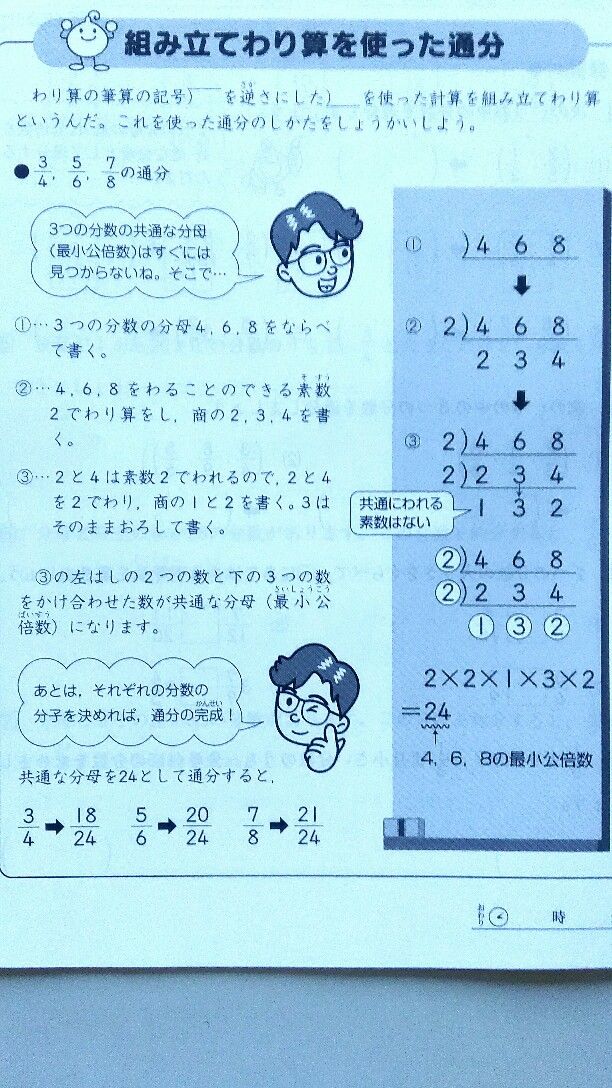 組み立てわり算を使った通分
わり算の筆算の記号)‾‾を逆さにした)__を使った計算を組み立てわり算
というんだ。これを使った通分のしかたをしょうかいしよう。
●3/4, 5/6, 7/8の通分
3つの分数の共通な分母
(最小公倍数)はすぐには
見つからないね。そこで…
①…3つの分数の分母4,6,8をならべ
て書く。
②…4,6,8をわることのできる素数
2でわり算をし,商の2,3,4を書
く。
③…2と4は素数2でわれるので,2と4
を2でわり,商の1と2を書く。3は
そのままおろして書く。
③の左はしの2つの数と下の3つの数
をかけ合わせた数が共通な分母(最小公
倍数)になります。
あとは,それぞれの分数の
分子を決めれば,通分の完成!
共通な分母を24として通分すると,
3/4➡18/24 5/6➡20/24 7/8➡21/24
① )4 6 8
② 2)4 6 8
2 3 4
③ 2)4 6 8
2)2 3 4
1 3 2
共通にわれる
素数はない
②)4 6 8
②)2 3 4
① ③ ②
2×2×1×3×2
=24
4, 6, 8の最小公倍数
おわり 時